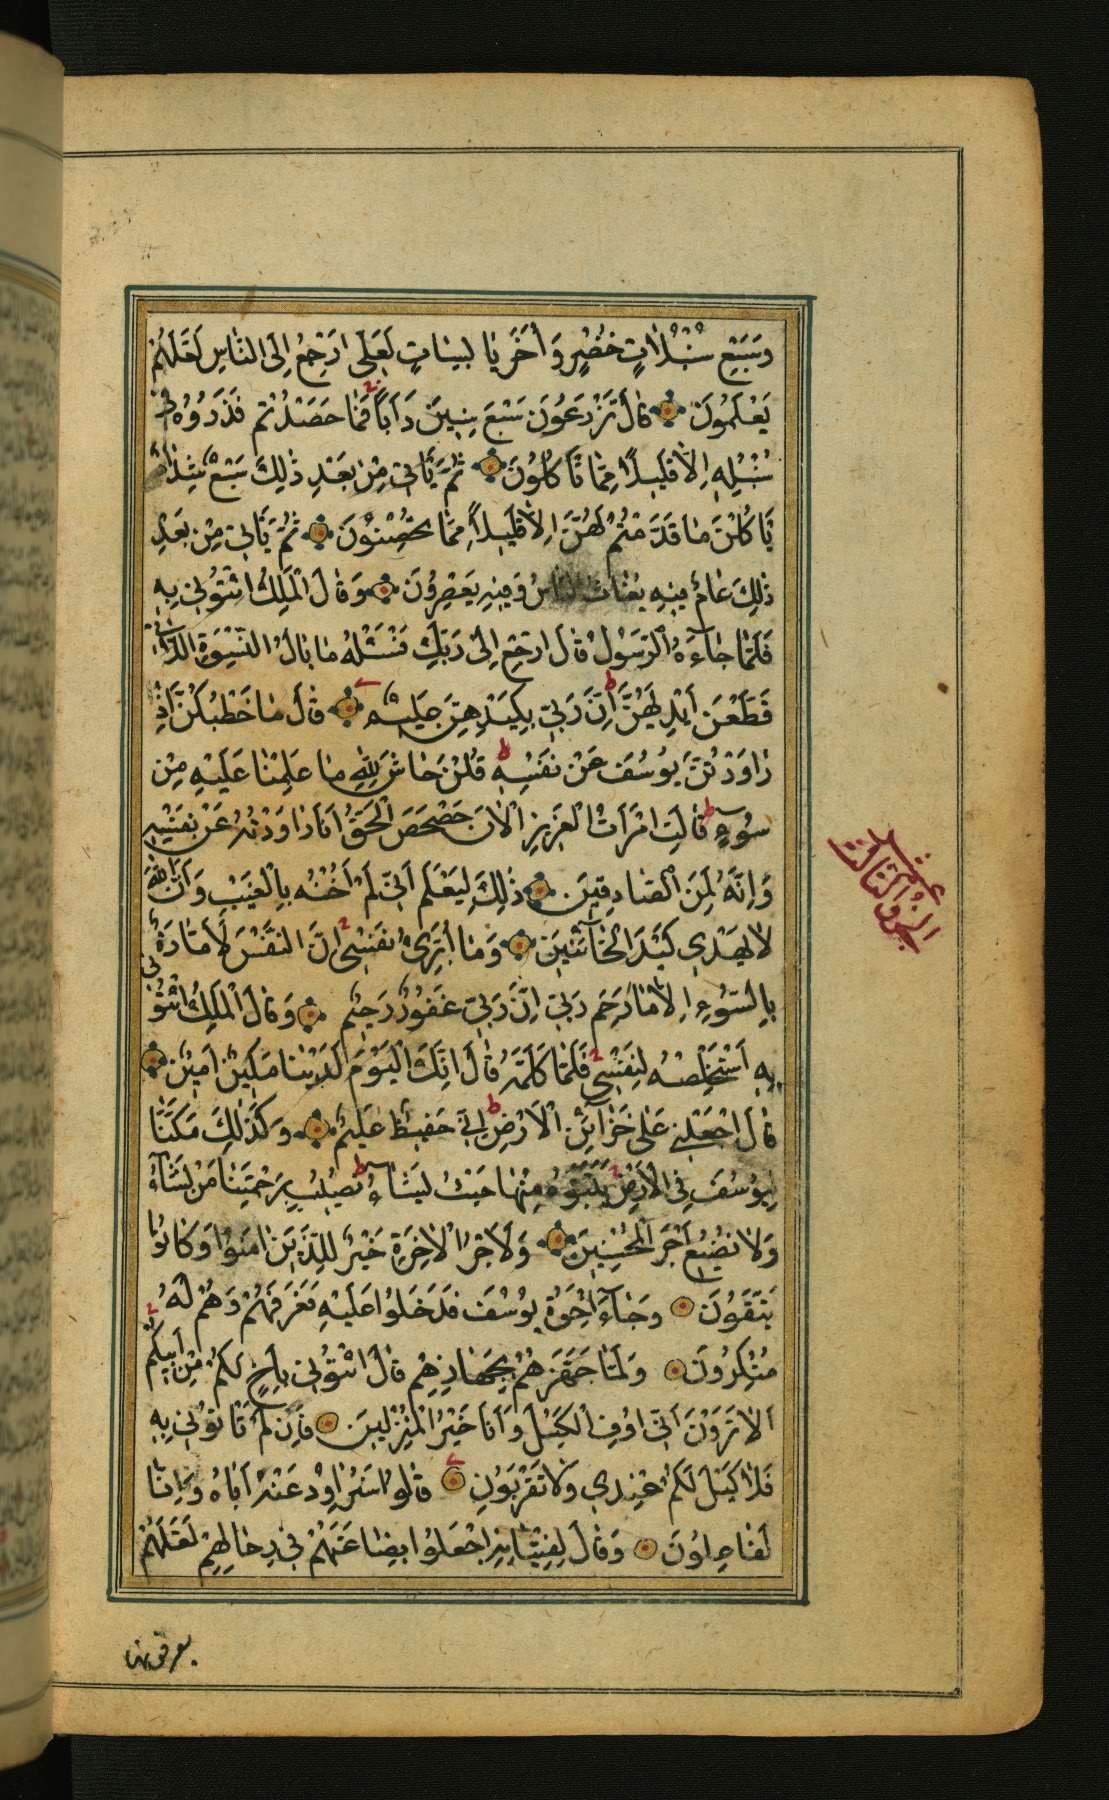 وَسَبْعِ سُنْبُلَاتٍ خُضْرٍ وَأُخَرَ يَابِسَاتٍ لَعَلِّى اَرْجِعُ اِلَى النَّاسِ لَعَلَّهُمْ
يَعْلَمُونَ قَالَ تَزْرَعُونَ سَبْعَ سِنِينَ دَاَبًا فَمَا حَصَدْتُمْ فَذَرُوُهُ فِى
سُنْبُلِهِ اِلَّا قَلِيلًا مِمَّا تَاْكُلُونَ ثُمَّ يَاْتِى مِنْ بَعْدِ ذٰلِكَ سَبْعٌ شِدَادٌ
يَاْكُلْنَ مَا قَدَّمْتُمْ لَهُنَّ اِلَّا قَلِيلًا مِمَّا تُحْصِنُونَ ثُمَّ يَاْتِى مِنْ بَعْدِ
ذٰلِكَ عَامٌ فِيهِ يُغَاثُ النَّاسُ وَفِيهِ يَعْصِرُونَ وَقَالَ الْمَلِكُ ائْتُونِى بِهِ
فَلَمَّا جَآءَهُ الرَّسُولُ قَالَ ارْجِعْ اِلَى رَبِّكَ فَسْئَلْهُ مَا بَالُ النِّسْوَةِ الّٰتِى
قَطَّعْنَ اَيْدِيَهُنَّ اِنَّ رَبِّى بِكَيْدِهِنَّ عَلِيمٌ قَالَ مَا خَطْبُكُنَّ اِذْ
رَاوَدْتُنَّ يُوسُفَ عَنْ نَفْسِهِ قُلْنَ حَاشَ لِلّٰهِ مَا عَلِمْنَا عَلَيْهِ مِنْ
سُوءٍ قَالَتِ امْرَاَتُ الْعَزِيزِ الْاٰنَ حَصْحَصَ الْحَقُّ اَنَا رَاوَدْتُهُ عَنْ نَفْسِهِ
وَاِنَّهُ لَمِنَ الصَّادِقِينَ ذٰلِكَ لِيَعْلَمَ اَنِّى لَمْ اَخُنْهُ بِالْغَيْبِ وَاَنَّ اللّٰهَ
لَا يَهْدِي كَيْدَ الْخَآئِنِينَ وَمَا اُبَرِّئُ نَفْسِى اِنَّ النَّفْسَ لَاَمَّارَةٌ
بِالسُّوءِ اِلَّا مَا رَحِمَ رَبِّى اِنَّ رَبِّى غَفُورٌ رَحِيمٌ وَقَالَ الْمَلِكُ ائْتُونِى
بِهِ اَسْتَخْلِصْهُ لِنَفْسِى فَلَمَّا كَلَّمَهُ قَالَ اِنَّكَ الْيَوْمَ لَدَيْنَا مَكِينٌ اَمِينٌ
قَالَ اجْعَلْنِى عَلَى خَزَآئِنِ الْاَرْضِ اِنِّى حَفِيظٌ عَلِيمٌ وَكَذٰلِكَ مَكَّنَّا
لِيُوسُفَ فِى الْاَرْضِ يَتَبَوَّءُ مِنْهَا حَيْثُ يَشَآءُ نُصِيبُ بِرَحْمَتِنَا مَنْ نَشَآءُ
وَلَا نُضِيعُ اَجْرَ الْمُحْسِنِينَ وَلَاَجْرُ الْاٰخِرَةِ خَيْرٌ لِلَّذِينَ اٰمَنُوا وَكَانُوا
يَتَّقُونَ وَجَآءَ اِخْوَةُ يُوسُفَ فَدَخَلُوا عَلَيْهِ فَعَرَفَهُمْ وَهُمْ لَهُ
مُنْكِرُونَ وَلَمَّا جَهَّزَهُمْ بِجَهَازِهِمْ قَالَ ائْتُونِى بِاَخٍ لَكُمْ مِنْ اَبِيكُمْ
اَلَا تَرَوْنَ اَنِّى اُوفِى الْكَيْلَ وَاَنَا خَيْرُ الْمُنْزِلِينَ فَاِنْ لَمْ تَاْتُونِى بِهِ
فَلَا كَيْلَ لَكُمْ عِنْدِي وَلَا تَقْرَبُونِ قَالُوا سَنُرَاوِدُ عَنْهُ اَبَاهُ وَاِنَّا
لَفَاعِلُونَ وَقَالَ لِفِتْيَانِهِ اجْعَلُوا بِضَاعَتَهُمْ فِى رِحَالِهِمْ لَعَلَّهُمْ
يعرفونها
الجزو الثالث عشر